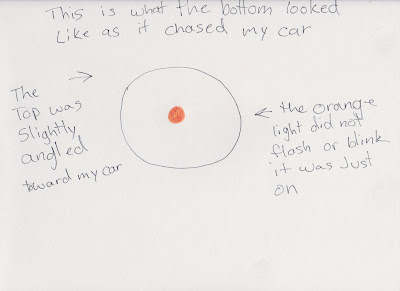 This is what the bottom looked
Like as it chased my car
The
Top was
Slightly
angled
toward my car
the orange
light did not
flash or blink
it was Just
on